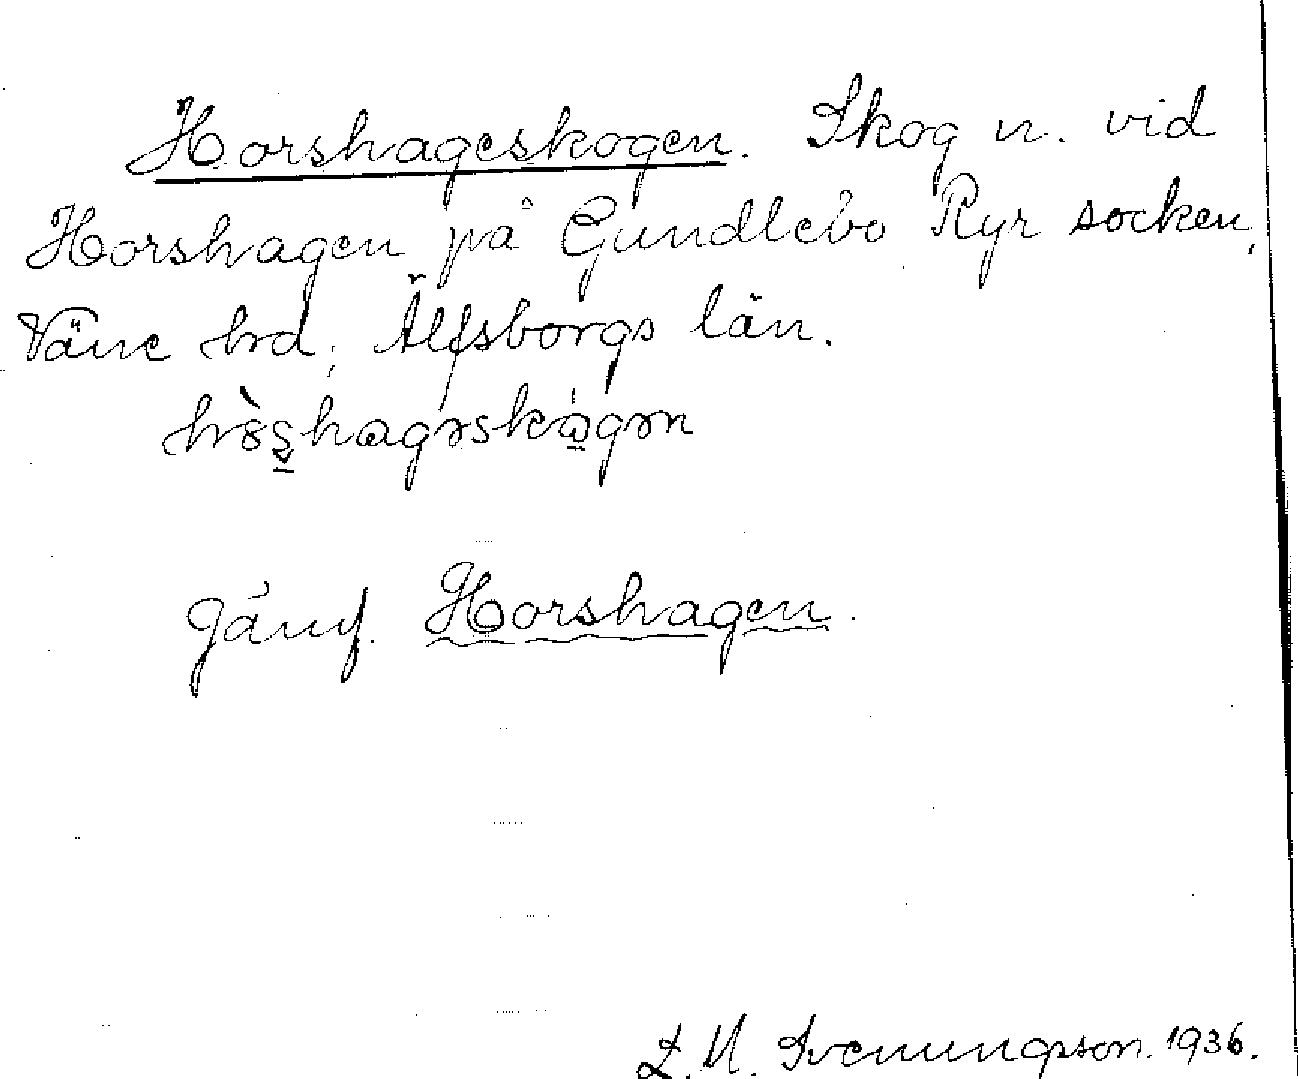 Horshageskogen. Skog n. vid
Horshagen på Gundlebo Ryr socken,
Väne hrd, Älfsborgs län.
Jämf. Horshagen.
Svenungsson. 1936.